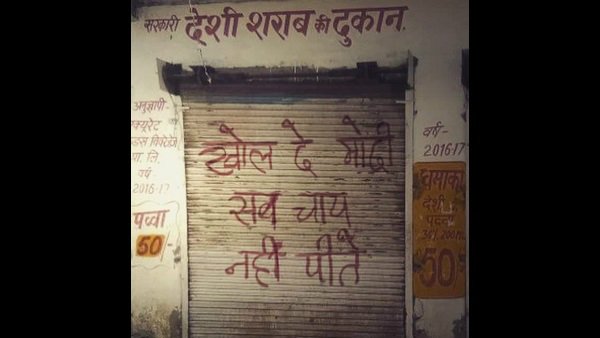 सरकारी देशी शराब की दुकान.
अनुज्ञापी-
वर्ष
2016-17
पव्वा
50/-
खोल दे मोदी
सब चाय
नहीं पीते
वर्ष-
2016-17
धमाका
देशी
पव्वा
50